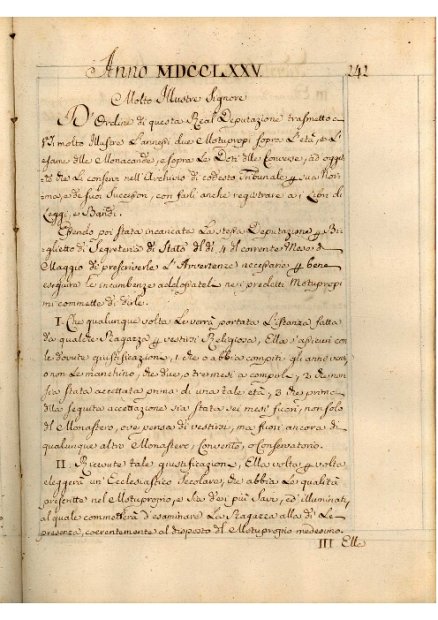 Anno MDCCLXXV. 242
Molto Illustre Signore
D'Ordine di questa Real Deputazione trasmetto a
VS. molto Illustre L'annessi due Motupropi sopra L'età, e L'e
same dlle Monacande, e sopra Le Doti dlle Converse, ad ogget
to che Li conservi nell'Archivio di codesto Tribunale p sua Nor
ma, e de suoi Successori, con farli anche registrare a i Libri di
Leggi, e Bandi.
Essendo poi stata incaricata La stessa Deputazione p Bi
glietto di Segreteria di Stato dl dì 4 del corrente Mese di
Maggio di prescriverle L'Avvertenze necessarie p bene
eseguire le incumbenze addossatele nei predetti Motupropi
mi commette di dirle.
I. Che qualunque volta Le verrà portata L'Istanza fatta
da qualche Ragazza p vestirsi Religiosa, Ella s'assicuri con
le dovute giustificazioni, 1 che o abbia compiti gli anni venti
o non Le manchino, che due, o tre mesi a compirli, 2 che non
sia stata accettata prima di una tale età, 3 che prima
dlla seguita accettazione sia stata sei mesi fuori, non solo
dl Monastero, ove pensa di vestirsi, ma fuori ancora di
qualunque altro Monastero, Convento, o Conservatorio.
II. Ricevute tale giustificazioni, Ella volta p volta
eleggerà un'Ecclesiastico Secolare, che abbia Le qualità
prescritte nel Motuproprio, e sia de i più Savi, ed illuminati,
al quale commetterà d'esaminare La Ragazza alla di Lei
presenza, coerentemente al disposto dl Motupropio medesimo.
III Ella